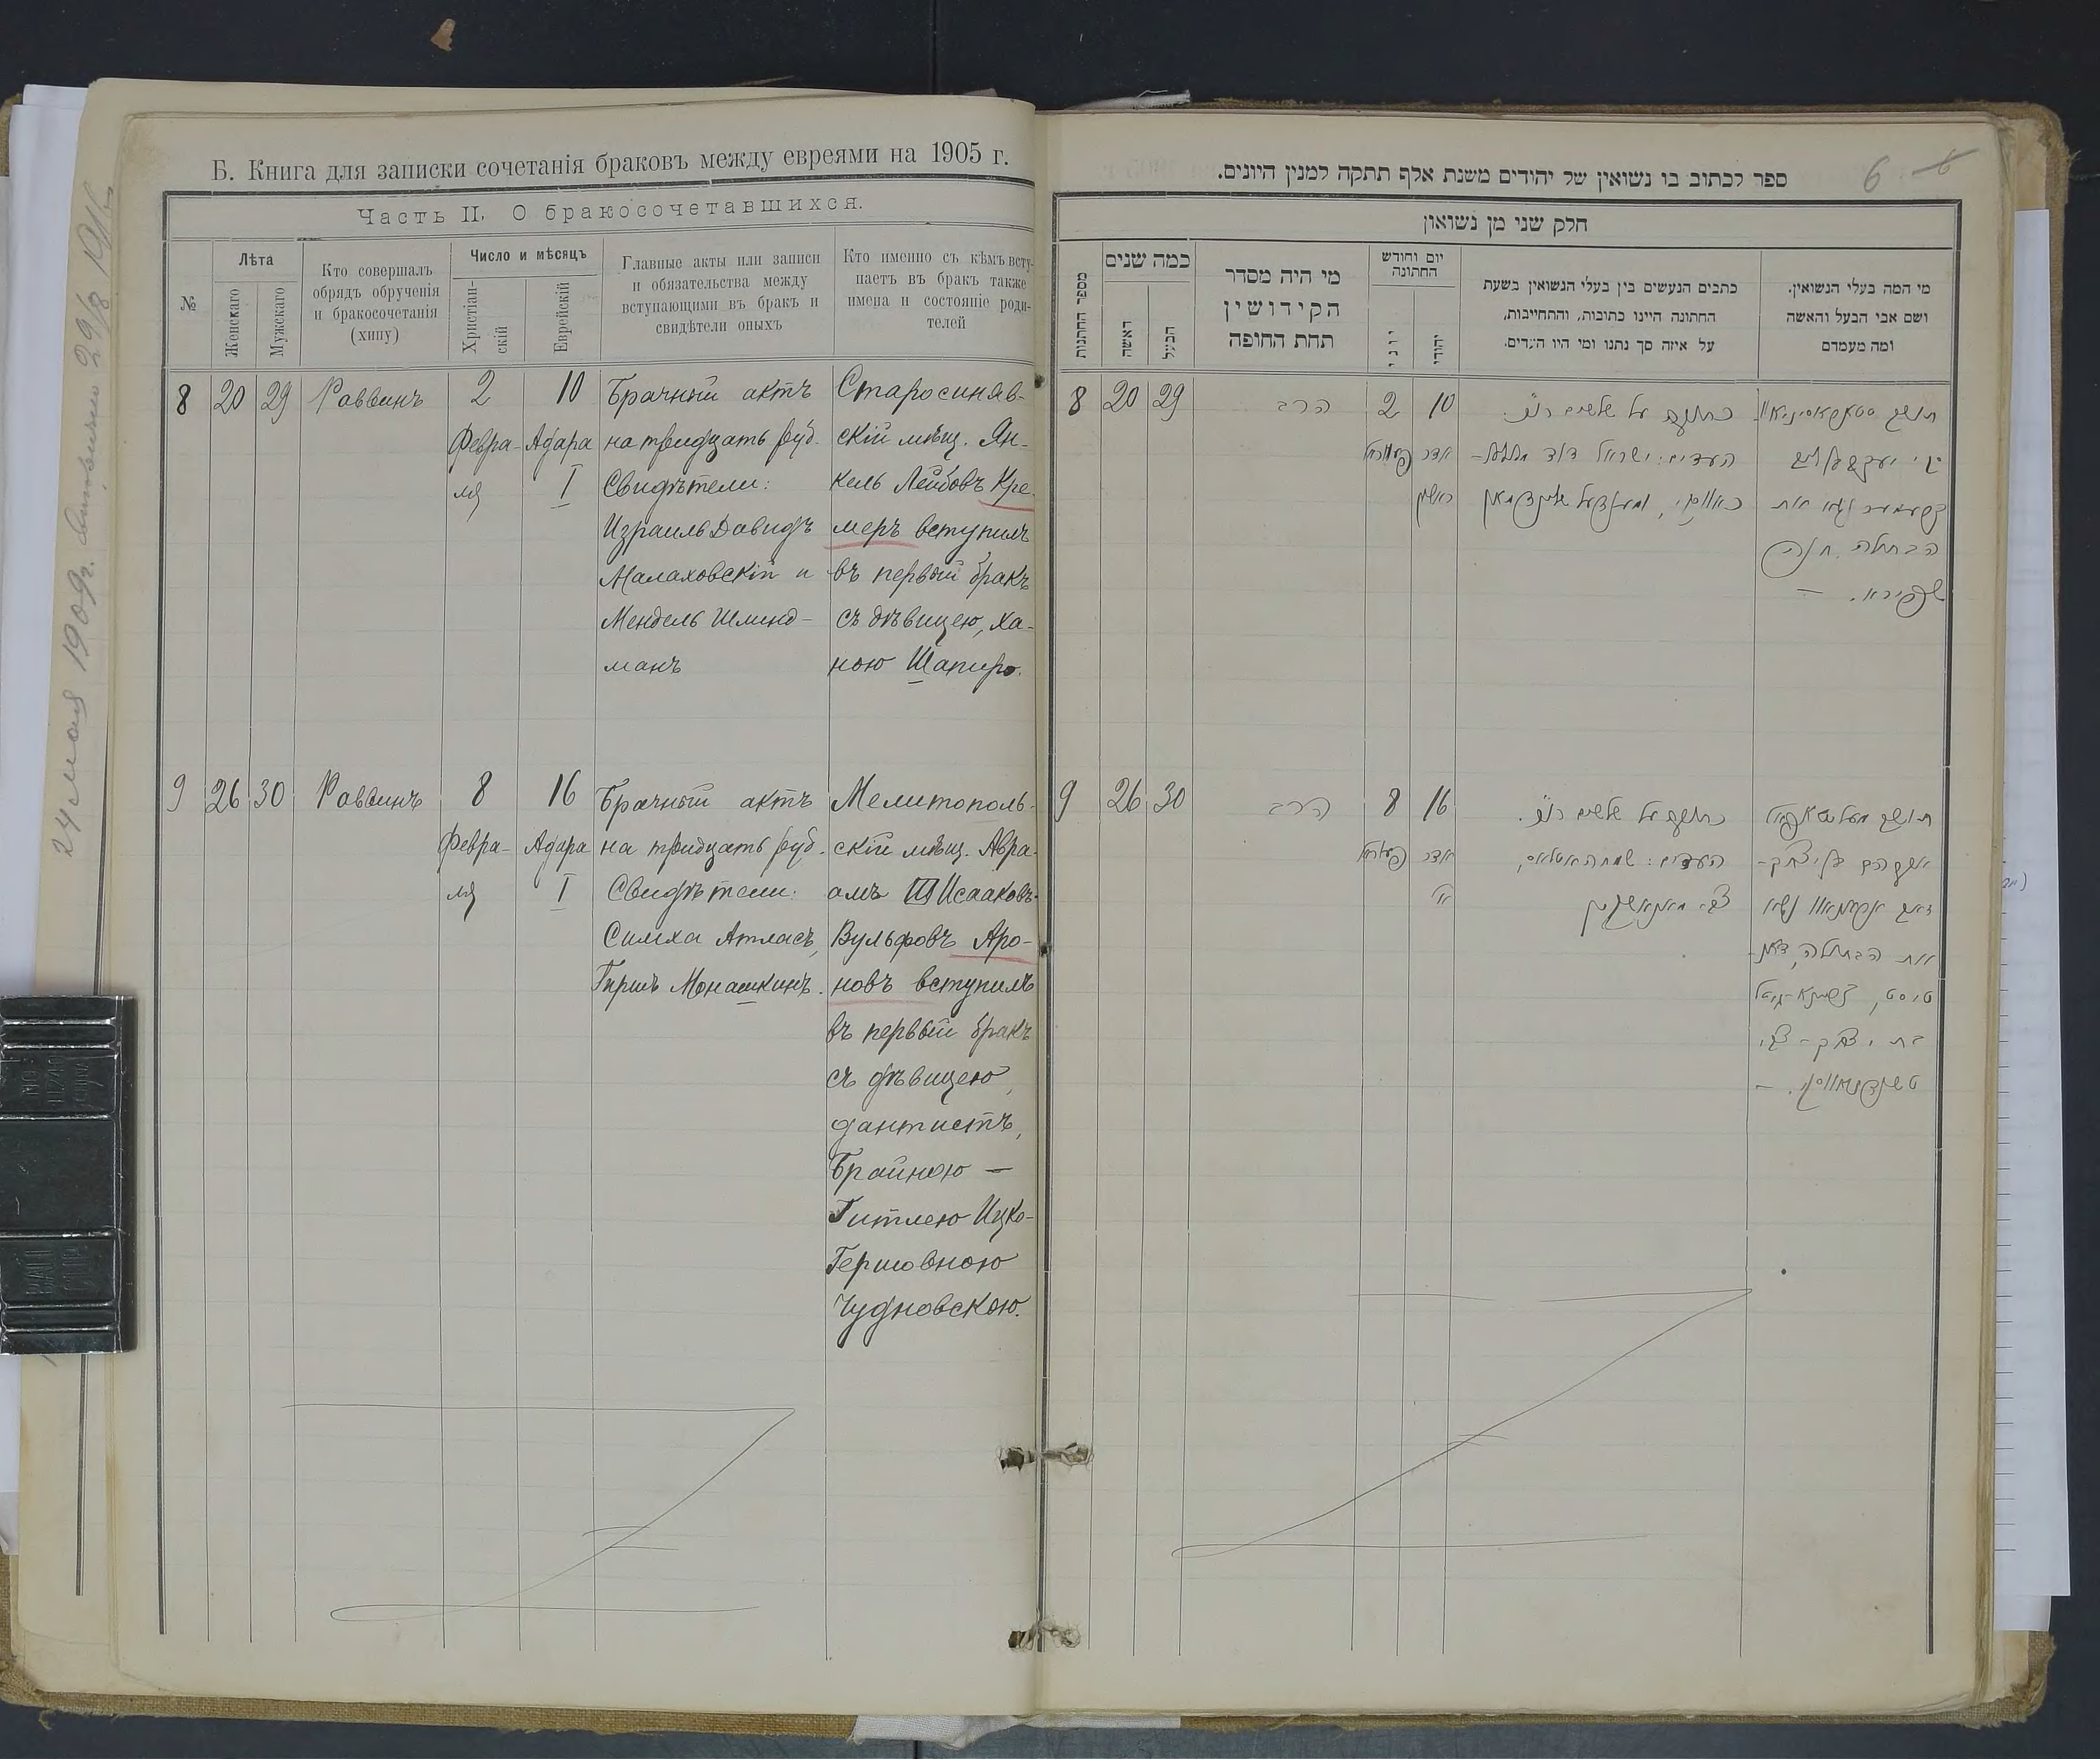 Б. Книга для записки сочетанія браковъ между евреями на 1905 г.
Часть II. О бракосочетавшихся.
№
Лѣта
Женскаго
Мужскаго
Кто совершалъ
обрядъ обрученія
и бракосочетанія
(хипу)
Число и мѣсяцъ
Христіан-
скій
Еврейскій
Главные акты или записи
и обязательства между
вступающими въ бракъ и
свидѣтели оныхъ
Кто именно съ кѣмъ всту-
паетъ въ бракъ также
имена и состояніе роди-
телей
8 20 29 Раввинъ
2
Февра-
ля
10
Адара
I
Брачный актъ
на тридцать руб.
Свидѣтели:
Израиль Давидъ
Малаховскій и
Мендель Шлинд-
манъ
Старосиняв-
скій мѣщ. Ян-
кель Лейбовъ Кре-
меръ вступилъ
въ первый бракъ
съ дѣвицею, Ха-
ною Шапиро.
9 26 30 Раввинъ
8
Февра-
ля
16
Адара
I
Брачный актъ
на тридцать руб.
Свидѣтели:
Симха Атласъ,
Гиршъ Монашкинъ.
Мелитополь-
скій мѣщ. Авра-
амъ Исааковъ-
Вульфовъ Аро-
новъ вступилъ
въ первый бракъ
съ дѣвицею,
дантистъ,
Брайною —
Гитлею Ицко-
Гершовною
Чудновскою.
24 мая 1909 г.
ספר לכתוב בו נשואין של יהודים משנת אלף תתקה למנין היונים.
6
חלק שני מן נשואון
מספר החתנות
כמה שנים
האשה
הבעל
מי היה מסדר
הקידושין
תחת החופה
יום וחודש
החתונה
יוני
יהודי
כתבים הנעשים בין בעלי הנשואין בשעת
החתונה היינו כתובות, והתחייבות,
על איזה סך נתנו ומי היו העדים.
מי המה בעלי הנשואין.
ושם אבי הבעל והאשה
ומה מעמדם
8 20 29 הרב
2
פעווראל
10
אדר
ראשון
כתובה על שלשים רו"כ.
העדים: ישראל דוד מאלאַ-
כאווסקי,
תושב
הבתולה חנה
שפירא. —
9 26 30 הרב
8
פעווראל
16
אדר
א'
כתובה על שלשים רו"כ.
העדים: שמחה אטלאס,
צבי מאנאשקין
תושב מעליטאפאל
אברהם בן יצחק-
זאב אראנאוו נשא
את הבתולה, דאנ-
טיסט, בריינא-גיטל
בת יצחק-צבי
טשודנאווסקי. —